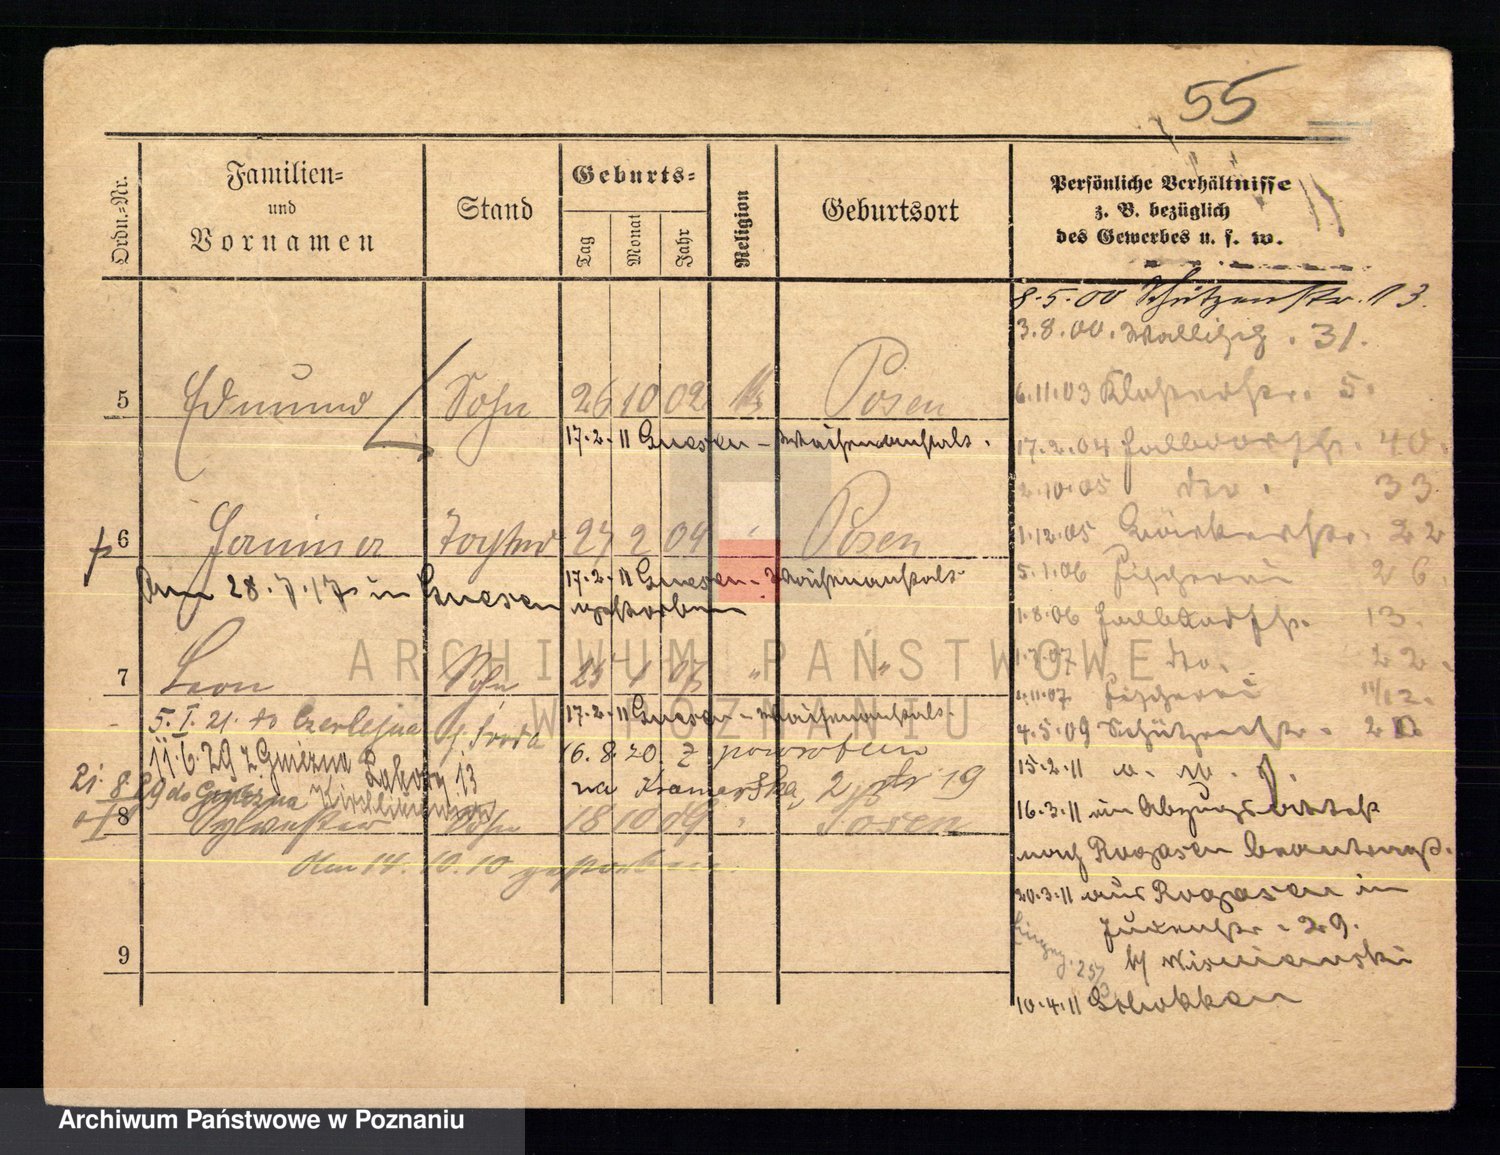 55
Ordn.-Nr.
Familien-
und
Vornamen
Stand
Geburts-
Tag
Monat
Jahr
Religion
Geburtsort
Persönliche Verhältnisse
z. B. bezüglich
des Gewerbes u. s. w.
8.5.00 Schützenstr. 13.
3.8.00. Wallischei . 31.
5 Edmund Sohn 26 10 02 k Posen
6.11.03 Klosterstr. 5.
17.2.11 Gnesen - Waisenanstalt.
17.2.04 Halbdorfstr. 40.
2.10.05 dto. 33
6 Tochter 27 2 04 Posen
1.12.05 22
Am 28.7.17 in Gnesen
17.2.11 Gnesen - Waisenanstalt
verstorben
5.1.06 Fischerei 26.
1.8.06 Halbdorfstr. 13.
7 Leon Sohn 1 07 " "
07 dto. 22.
1.11.07 Fischerei 11/12.
17.2.11 Gnesen - Waisenanstalt.
5.I.21. do
4.5.09 Schützenstr. 20
11.6.29 z Gniezna 13
16.8.20. z powrotem
na Kramarska 2 19
15.2.11 o. W.
21.8.29 do Gniezna
8 Sylvester Sohn 18 10 09 " Posen
16.3.11 im Abzugsattest
nach Rogasen beantragt.
Am 14.10.10 gestorben.
20.3.11 aus Rogasen in
Judenstr. 29.
b/
9
257
10.4.11 Schokken
ARCHIWUM PAŃSTWOWE
W POZNANIU
Archiwum Państwowe w Poznaniu